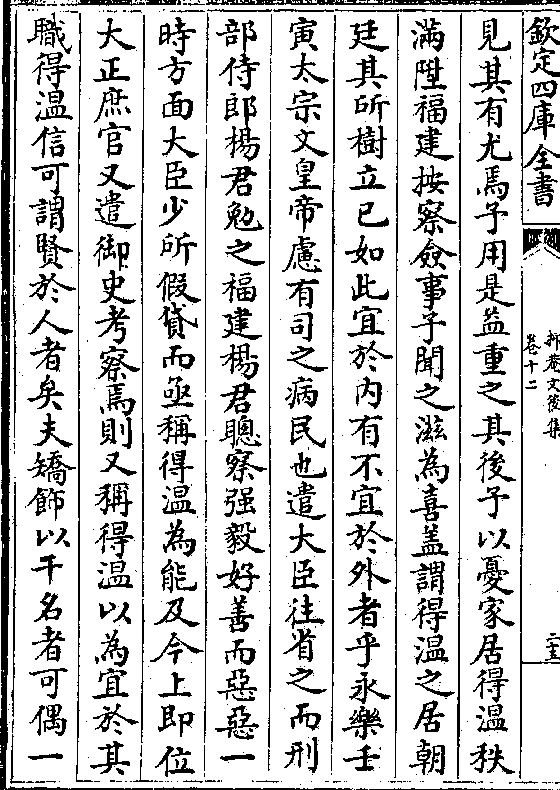 欽定四庫全書
抑菴文後集
卷十二
二五
見其有尤焉予用是益重之其後予以憂家居得溫秩
滿陞福建按察僉事予聞之滋為喜盖謂得溫之居朝
廷其所樹立已如此宜於内有不宜於外者乎永樂壬
寅太宗文皇帝慮有司之病民也遣大臣往省之而刑
部侍郎楊君勉之福建楊君聰察强毅好善而惡惡一
時方面大臣少所假貸而亟稱得溫為能及今上即位
大正庶官又遣御史考察焉則又稱得溫以為宜於其
職得溫信可謂賢於人者矣夫矯飾以干名者可偶一